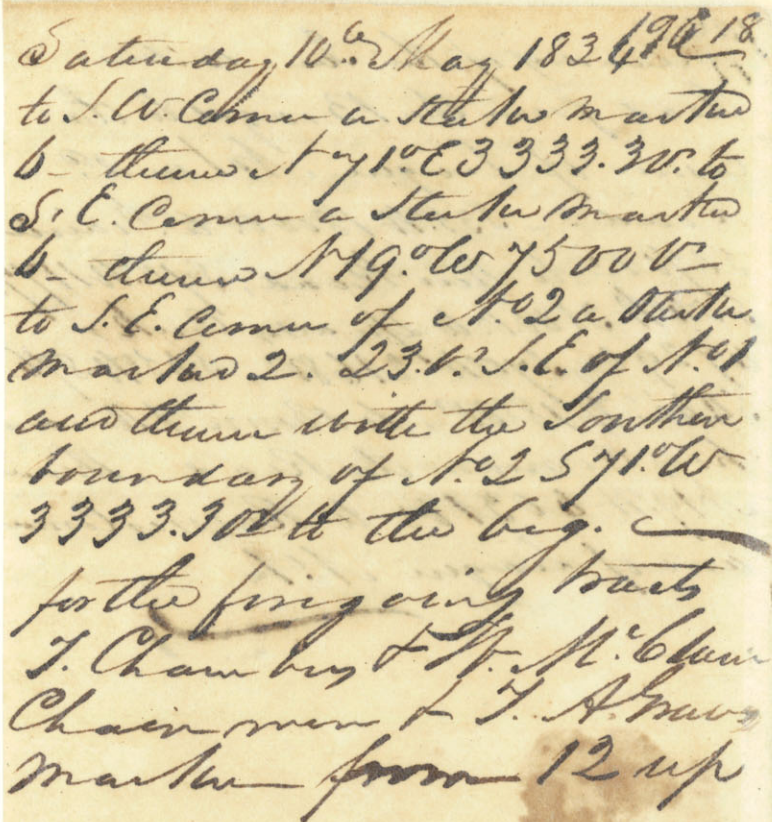 Saturday 10th May 1834 18
to S. W. Corner a Stake marked
6 - thence N 71° E 3333.3 vs. to
S. E. Corner a Stake marked
6 - thence N 19° W 7500 Vs
to S. E. Corner of No. 2 a Stake
marked 2. 23. Vs. S. E. of No. 1
and thence with the Southern
boundary of No. 2 S 71° W
3333.30 vs to the beg.
for the foregoing tracts
T. Chambers & W. McClain
Chain men & T. A. Graves
marker from 12 up